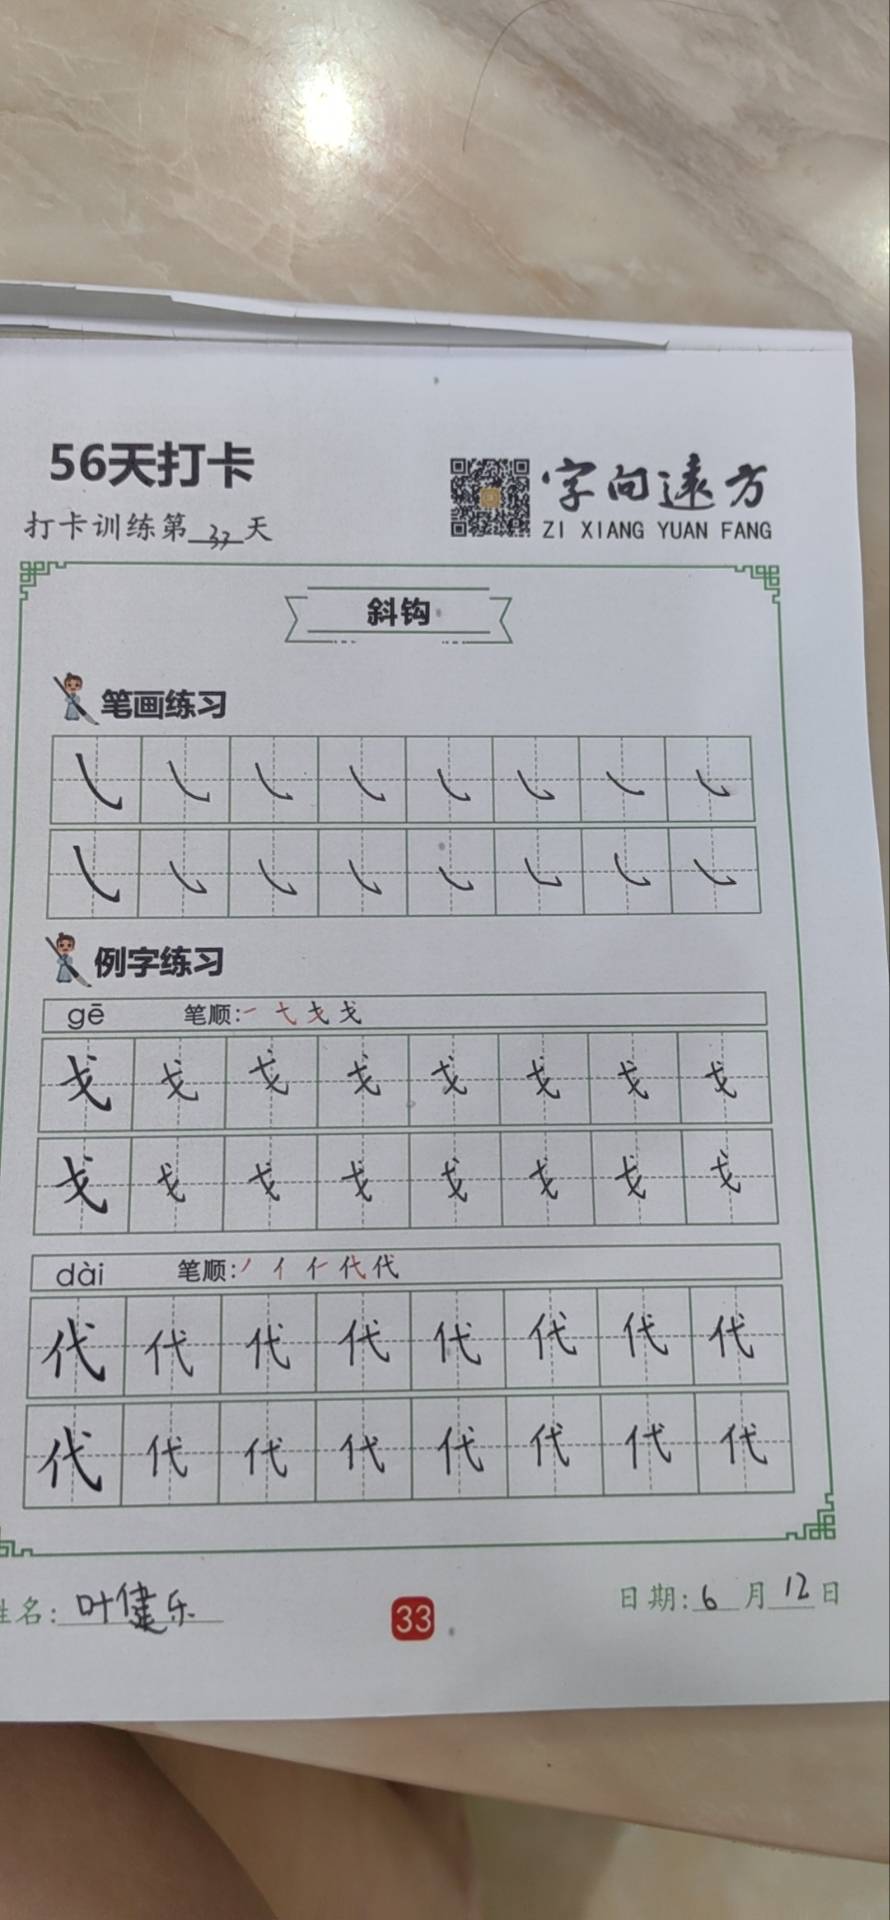 56天打卡
字向远方
打卡训练第33天
ZI XIANG YUAN FANG
斜钩
笔画练习
例字练习
gē 笔顺:
戈 戈 戈 戈 戈 戈 戈 戈
戈 戈 戈 戈 戈 戈 戈 戈
dài 笔顺:
代 代 代 代 代 代 代 代
代 代 代 代 代 代 代 代
姓名: 叶健乐
33
日期: 6 月 12 日